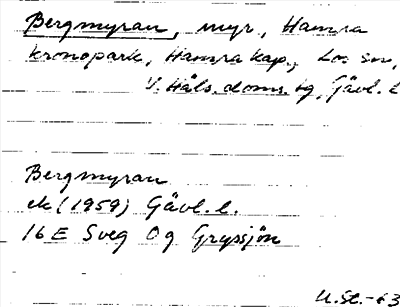 Bergmyran, myr, Hamra
kronopark, Hamra kap., Los sn,
V. Häls. doms. tg, Gävl. l.
Bergmyran
ek (1959) Gävl. l.
16 E Sveg 0 g Gryssjön
U. St. -63